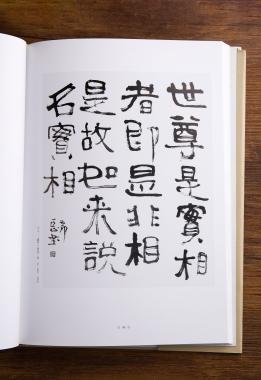 世尊是實相
者即是非相
是故如来説
名實相